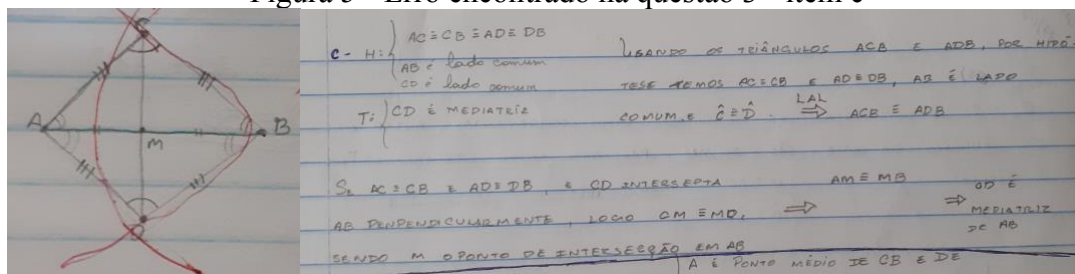 Figura 3 – Erro encontrado na questão 3 – item c
C
A
B
M
D
C - H: AC ≡ CB ≡ AD ≡ DB
AB é lado comum
CD é lado comum
T: CD É MEDIATRIZ
USANDO OS TRIÂNGULOS ACB E ADB, POR HIPÓ-
TESE TEMOS AC ≡ CB E AD ≡ DB, AB É LADO
COMUM, E Ĉ ≡ D̂. LAL ⇒ ACB ≡ ADB
SE AC ≡ CB E AD ≡ DB, E CD INTERSEPTA
AB PENPENDICULARMENTE, LOGO CM ≡ MD,
SENDO M O PONTO DE INTERSECÇÃO EM AB
⇒ AM ≡ MB ⇒ CD É
MEDIATRIZ
DE AB
A É PONTO MÉDIO DE CB E DE